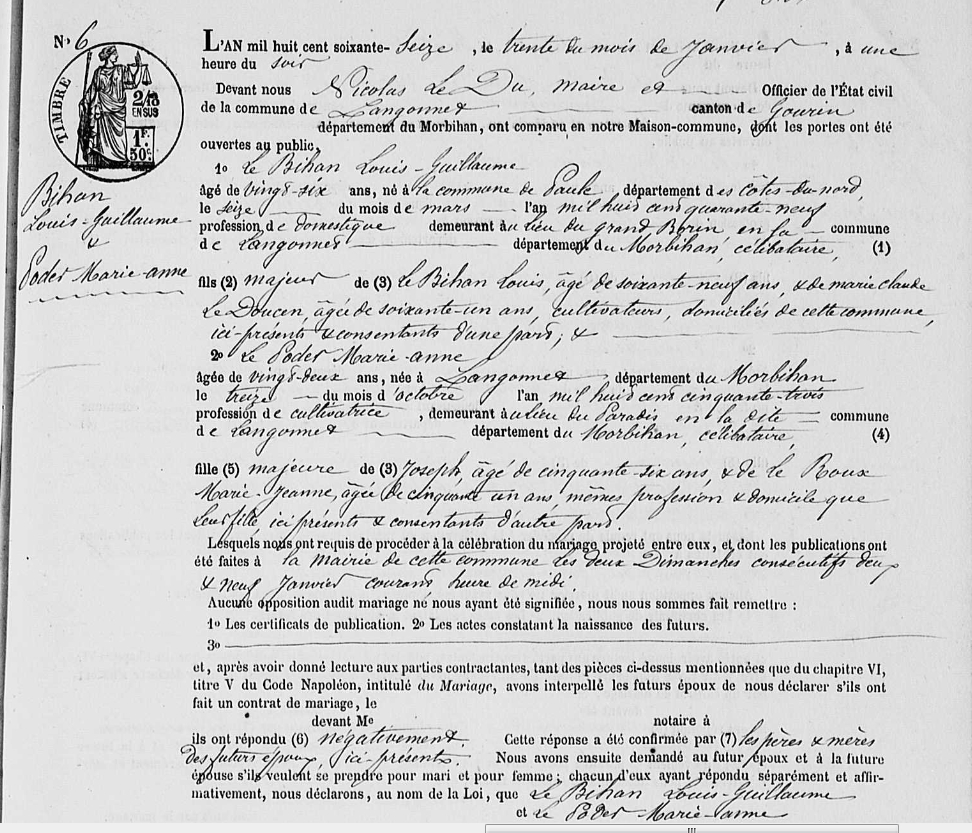 N° 6
L'AN mil huit cent soixante- Seize , le trente du mois de Janvier , à une
heure du soir
TIMBRE
2/10
EN SUS
1F.
50c.
Devant nous Nicolas Le Du, maire et Officier de l'État civil
de la commune de Langonnet canton de Gourin
département du Morbihan, ont comparu en notre Maison-commune, dont les portes ont été
ouvertes au public,
1o Le Bihan Louis-Guillaume
Bihan
Louis-Guillaume
&
Poder Marie-anne
âgé de vingt-six ans, né à la commune de Paule département des côtes-du-nord
le seize du mois de mars l'an mil huit cent quarante-neuf
profession de domestique demeurant au lieu du grand en la commune
de Langonnet département du Morbihan, célibataire, (1)
fils (2) majeur de (3) Le Bihan Louis, âgé de soixante-neuf ans, & de marie claude
Le Doucen, âgée de soixante-un ans, cultivateurs, domiciliés de cette commune,
ici-présents & consentants d'une part; &
2o Le Poder Marie-anne
âgée de vingt-deux ans, née à Langonnet département du Morbihan
le treize du mois d'octobre l'an mil huit cent cinquante-trois
profession de cultivatrice , demeurant au lieu du Paradis en la dite commune
de Langonnet département du Morbihan, célibataire, (4)
fille (5) majeure de (3) Joseph, âgé de cinquante-six ans, & de Le Roux
Marie-Jeanne, âgée de cinquante un ans, mêmes profession & domicile que
leur fille, ici présents & consentants d'autre part.
Lesquels nous ont requis de procéder à la célébration du mariage projeté entre eux, et dont les publications ont
été faites à la Mairie de cette commune les deux Dimanches consécutifs deux
& neuf Janvier courant heure de midi
Aucune opposition audit mariage ne nous ayant été signifiée, nous nous sommes fait remettre :
1o Les certificats de publication. 2o Les actes constatant la naissance des futurs.
3o
et, après avoir donné lecture aux parties contractantes, tant des pièces ci-dessus mentionnées que du chapitre VI,
titre V du Code Napoléon, intitulé du Mariage, avons interpellé les futurs époux de nous déclarer s'ils ont
fait un contrat de mariage, le
devant Me notaire à
ils ont répondu (6) négativement. Cette réponse a été confirmée par (7) les pères & mères
des futurs époux, ici-présents. Nous avons ensuite demandé au futur époux et à la future
épouse s'ils veulent se prendre pour mari et pour femme; chacun d'eux ayant répondu séparément et affir-
mativement, nous déclarons, au nom de la Loi, que Le Bihan Louis-Guillaume
et Le Poder Marie-anne